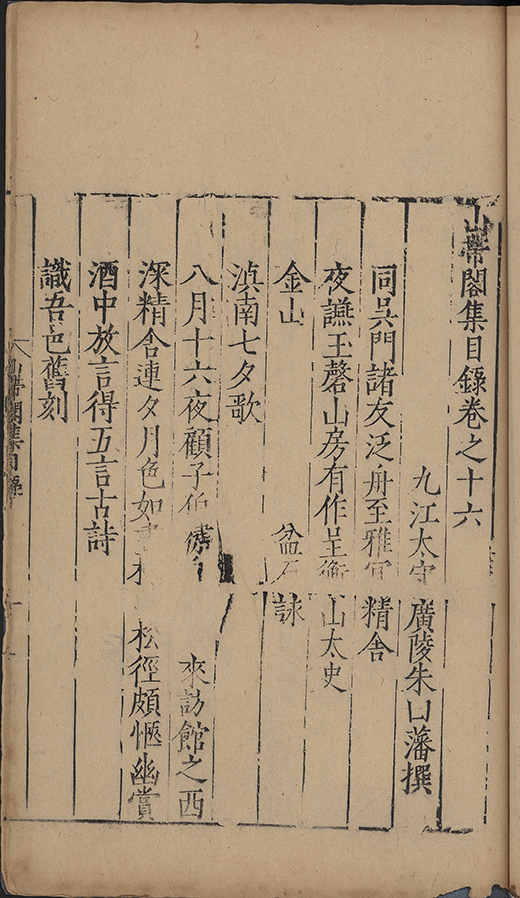 山帶閣集目錄卷之十六
九江太守廣陵朱曰藩撰
同吳門諸友泛舟至雅宜精舍
夜讌玉磬山房有作呈衡山太史
金山 盆石詠
滇南七夕歌
八月十六夜顧子 來訪館之西
深精舍連夕月色如 松徑頗愜幽賞
酒中放言得五言古詩
識吾邑舊刻
山帶閣集目錄